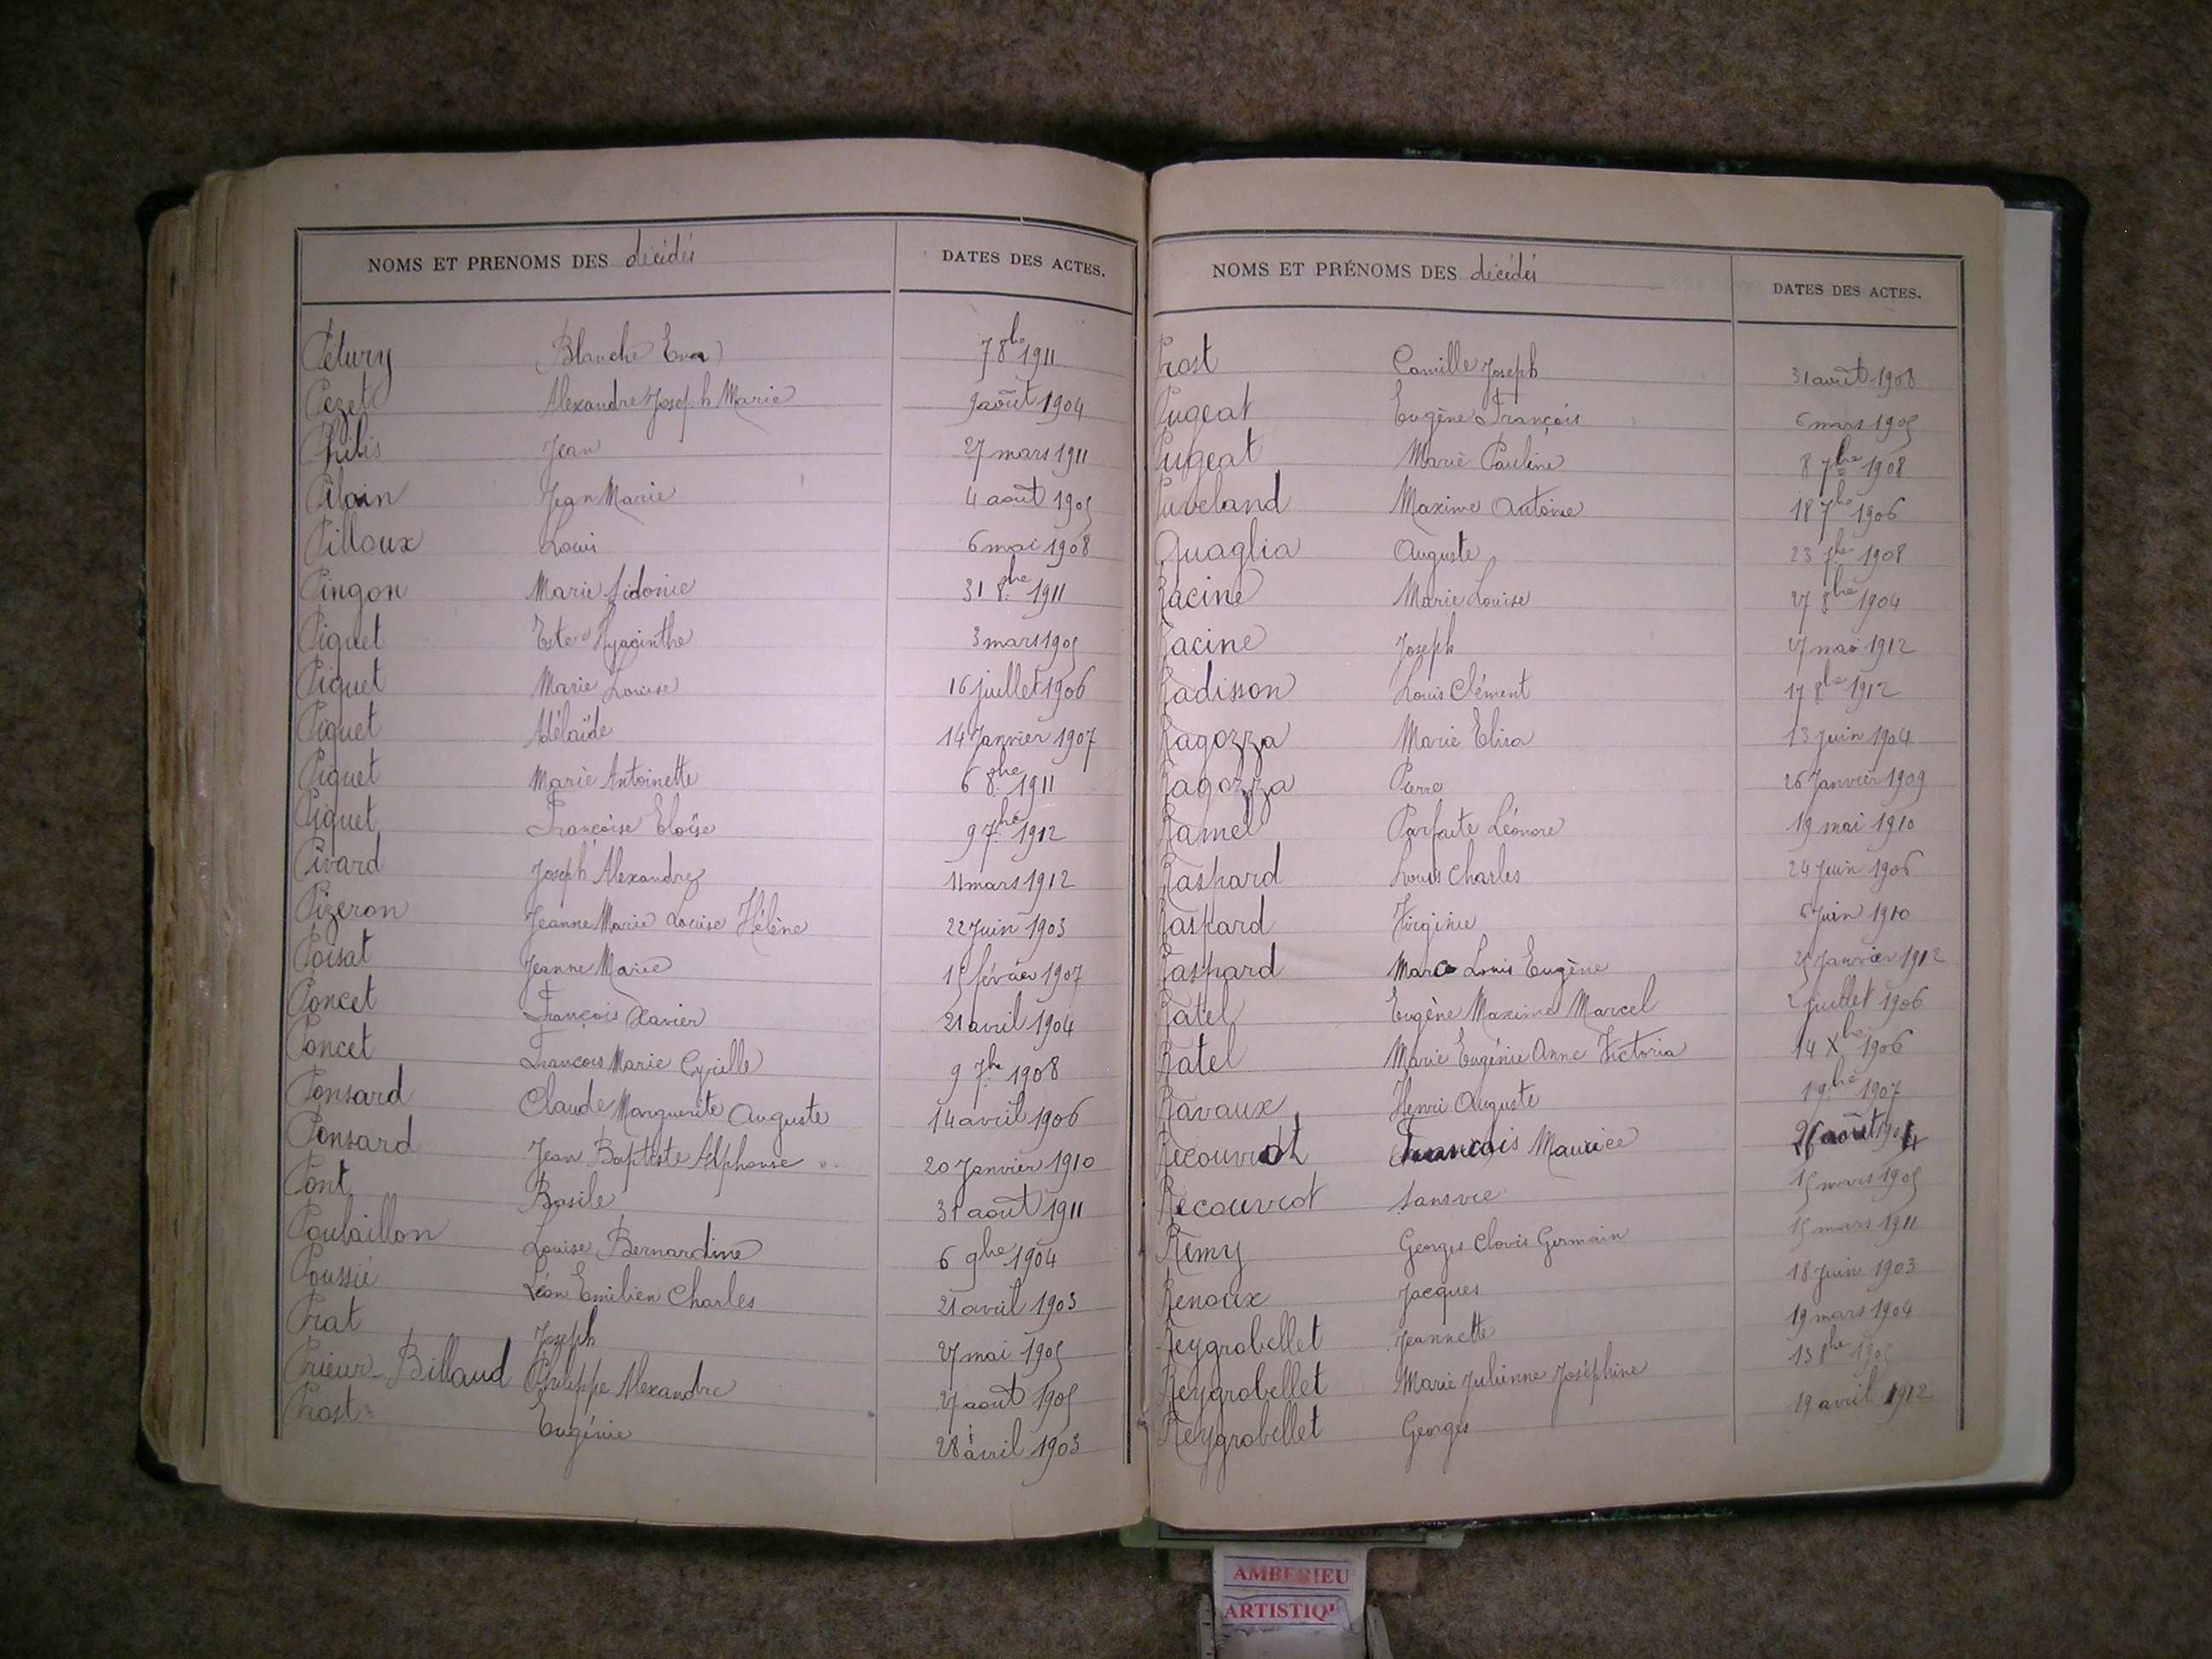 NOMS ET PRENOMS DES décédés DATES DES ACTES.
Pétury Blanche Eva 7 8bre 1911
Pezet Alexandre Joseph Marie 9 août 1904
Philis Jean 27 mars 1911
Pilain Jean Marie 4 août 1905
Pilloux Louis 6 mai 1908
Pingon Marie Sidonie 31 8bre 1911
Piquet Hyacinthe 3 mars 1905
Piquet Marie Louise 16 juillet 1906
Piquet Adélaïde 14 Janvier 1907
Piquet Marie Antoinette 6 8bre 1911
Piquet Françoise Eloïse 9 7bre 1912
Pivard Joseph Alexandre 11 mars 1912
Pizeron Jeanne Marie Louise Hélène 22 Juin 1903
Poisat Jeanne Marie 15 février 1907
Poncet François Xavier 21 avril 1904
Poncet François Marie Cyrille 9 7bre 1908
Ponsard Claude Marguerite Auguste 14 avril 1906
Ponsard Jean Baptiste Alphonse 20 Janvier 1910
Pont Basile 31 août 1911
Poulaillon Louise Bernardine 6 9bre 1904
Poussié Léon Emilien Charles 21 avril 1903
Prat Joseph 27 mai 1905
Prieur-Billaud Philippe Alexandre 27 août 1905
Prost Eugénie 28 avril 1903
NOMS ET PRÉNOMS DES décédés DATES DES ACTES.
Prost Camille Joseph 31 août 1908
Pugeat Eugène François 6 mars 1905
Pugeat Marie Pauline 8 7bre 1908
Puveland Maxime Antoine 18 7bre 1906
Quaglia Auguste 23 7bre 1908
Racine Marie Louise 27 8bre 1904
Racine Joseph 27 mai 1912
Radisson Louis Clément 17 8bre 1912
Ragozza Marie Elisa 13 Juin 1904
Ragozza Pierre 26 Janvier 1909
Ramel Parfaite Léonore 19 mai 1910
Raspard Louis Charles 24 Juin 1906
Raspard Virginie Juin 1910
Raspard Marc Louis Eugène 25 Janvier 1912
Ratel Eugène Maxime Marcel 2 juillet 1906
Ratel Marie Eugénie Anne Victoria 14 Xbre 1906
Ravaux Henri Auguste 1 9bre 1907
Recouvrot François Maurice 26 août 1904
Recouvrot sans vie 15 mars 1905
Remy Georges Clovis Germain 15 mars 1911
Renoux Jacques 18 Juin 1903
Reygrobellet Jeannette 19 mars 1904
Reygrobellet Marie Julienne Joséphine 13 8bre 1905
Reygrobellet Georges 19 avril 1912
AMBERIEU
ARTISTIQU